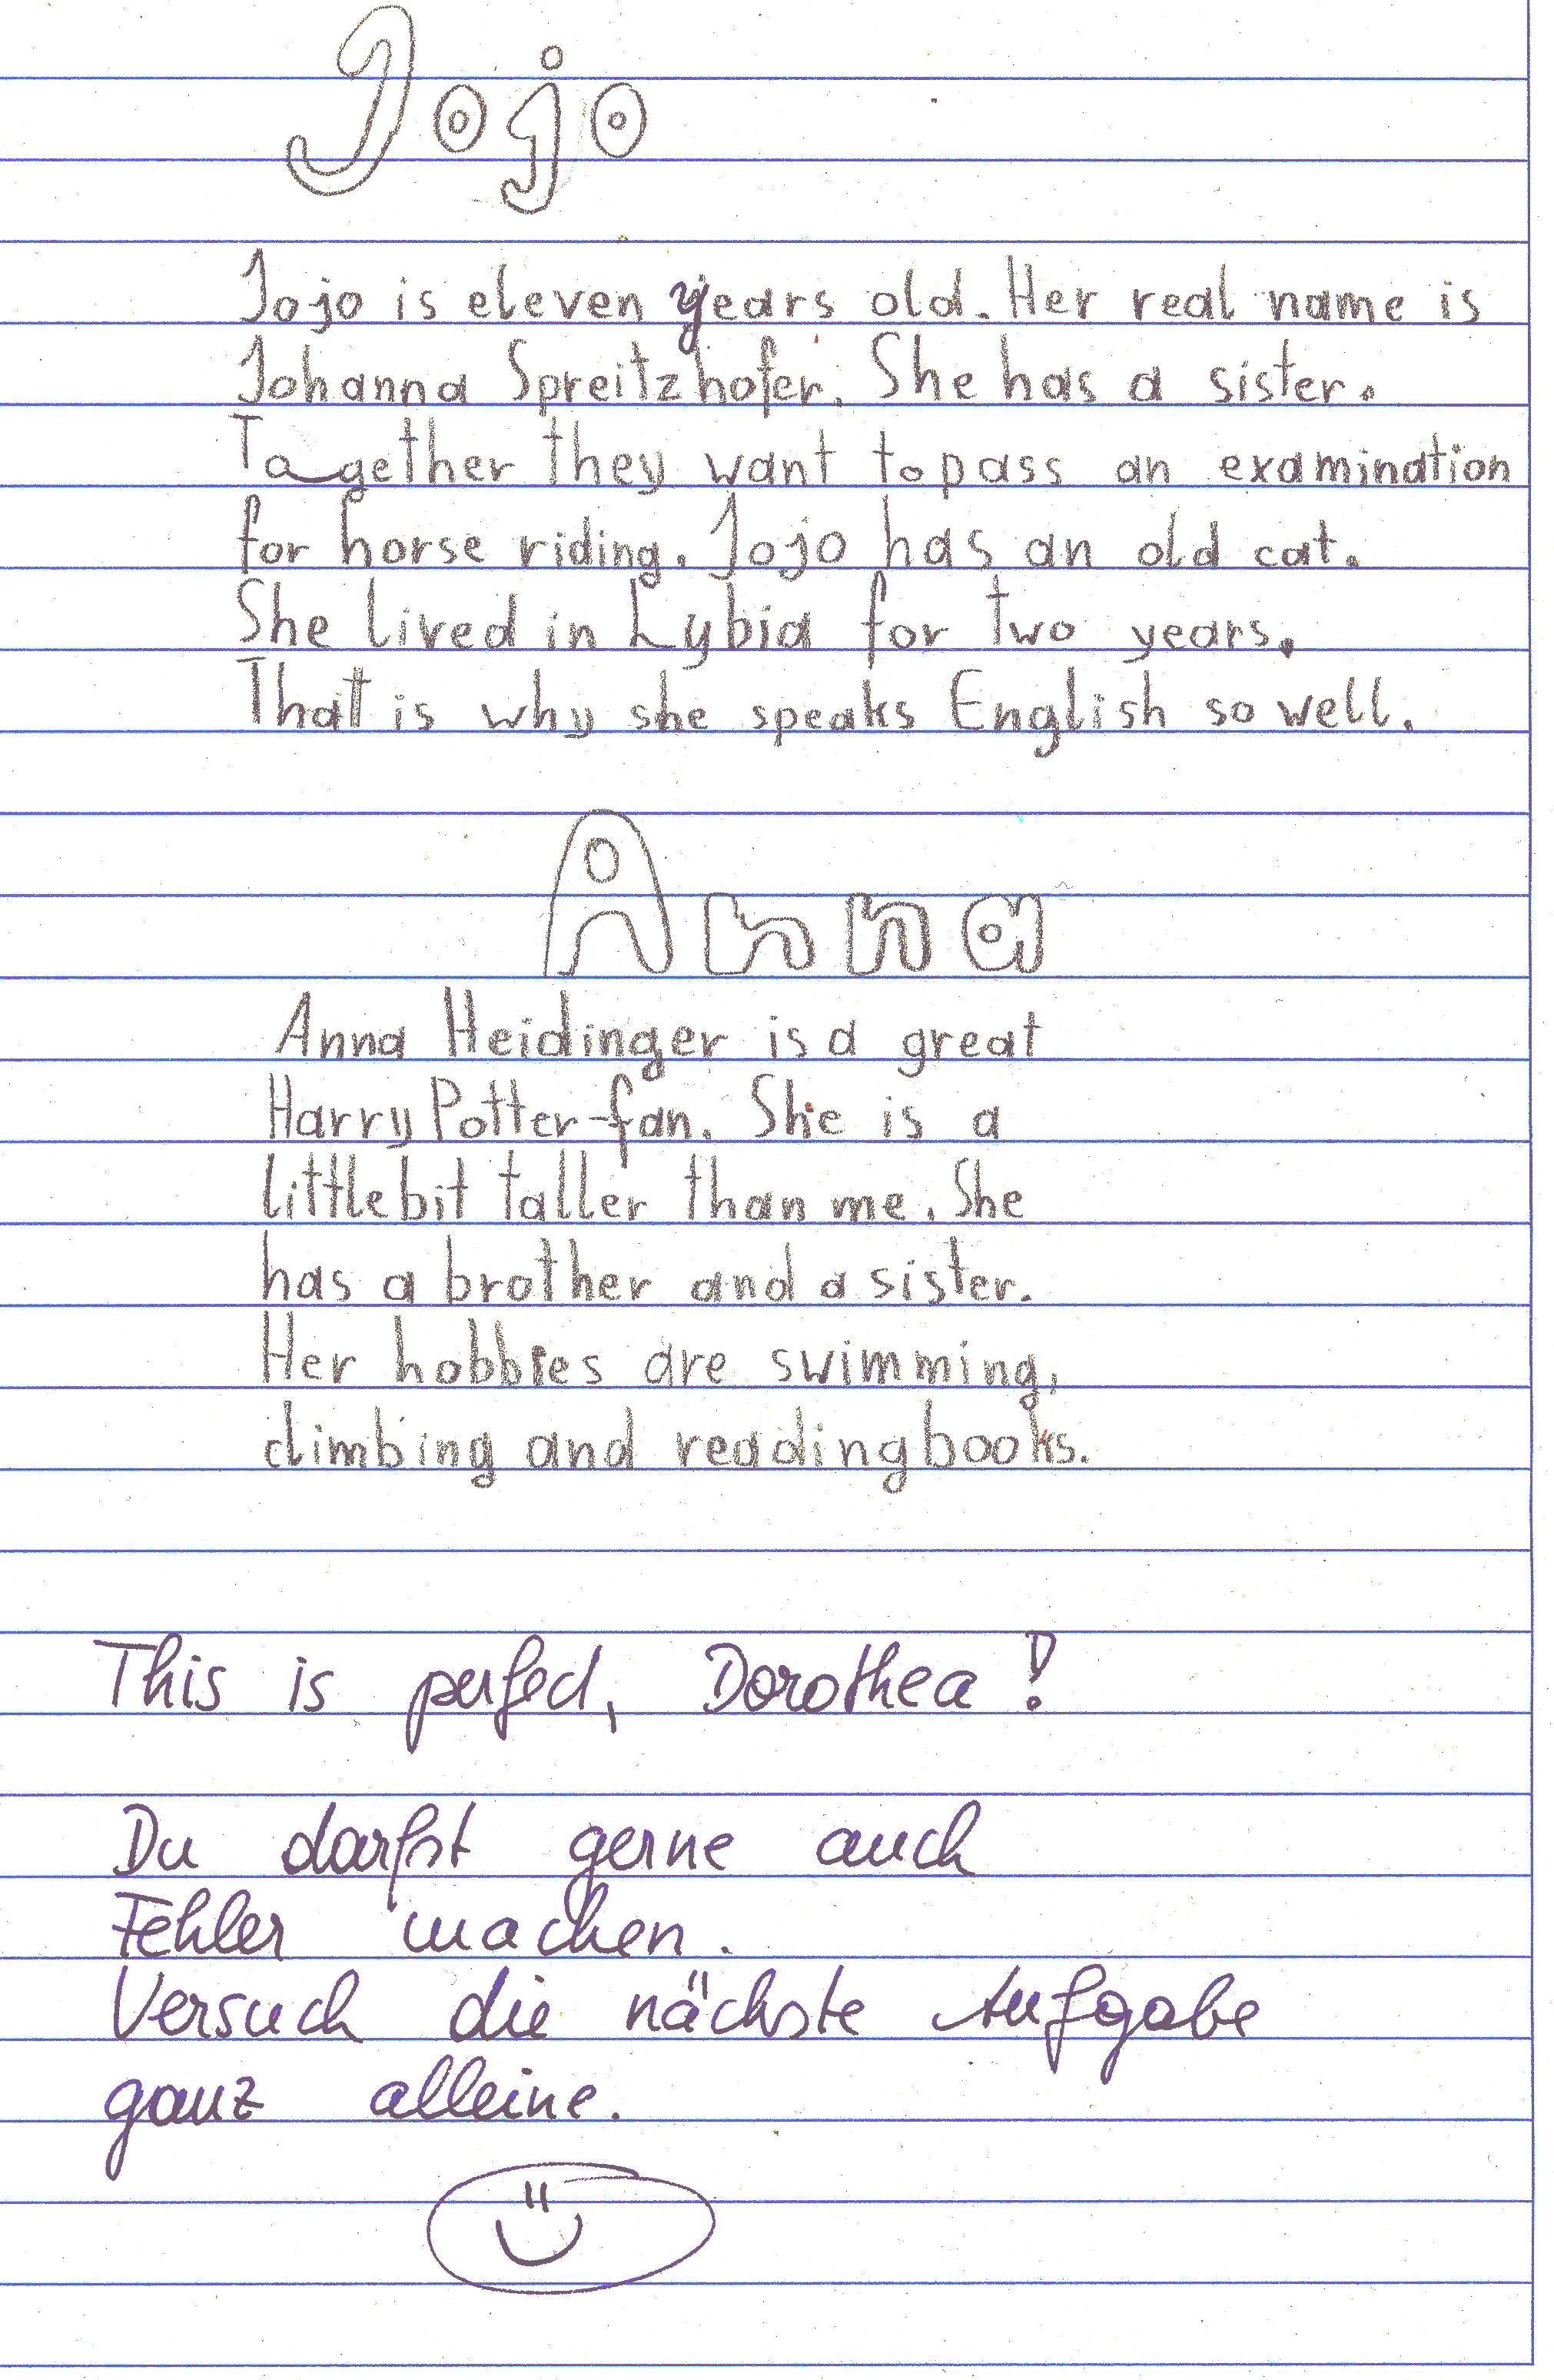 Jojo
Jojo is eleven years old. Her real name is
Johanna Spreitzhofer. She has a sister.
Together they want to pass an examination
for horse riding. Jojo has an old cat.
She lived in Lybia for two years.
That is why she speaks English so well.
Anna
Anna Heidinger is a great
Harry Potter-fan. She is a
little bit taller than me. She
has a brother and a sister.
Her hobbies are swimming,
climbing and reading books.
This is perfect, Dorothea!
Du darfst gerne auch
Fehler machen.
Versuch die nächste Aufgabe
ganz alleine.